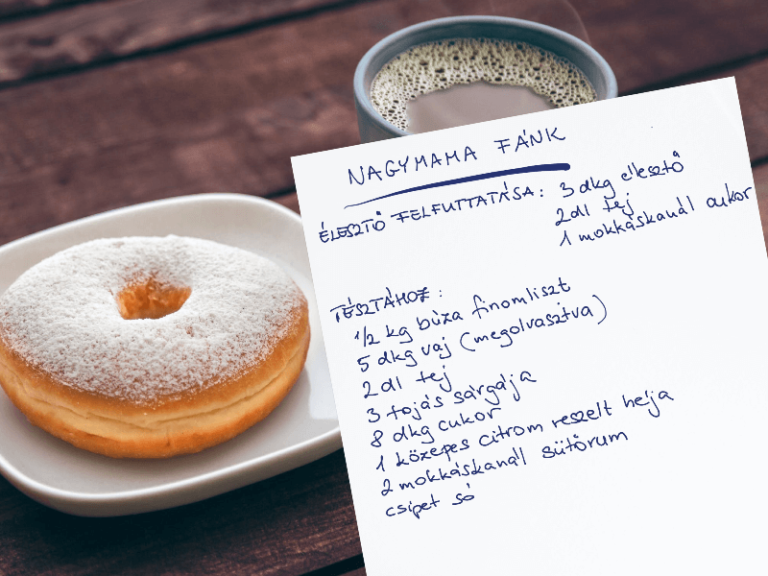 NAGYMAMA FÁNK
ÉLESZTŐ FELFUTTATÁSA: 3 dkg élesztő
2dl tej
1 mokkáskanál cukor
TÉSZTÁHOZ:
1/2 kg búza finomliszt
5 dkg vaj (megolvasztva)
2 dl tej
3 tojás sárgája
8 dkg cukor
1 közepes citrom reszelt héja
2 mokkáskanál sütőrum
csipet só